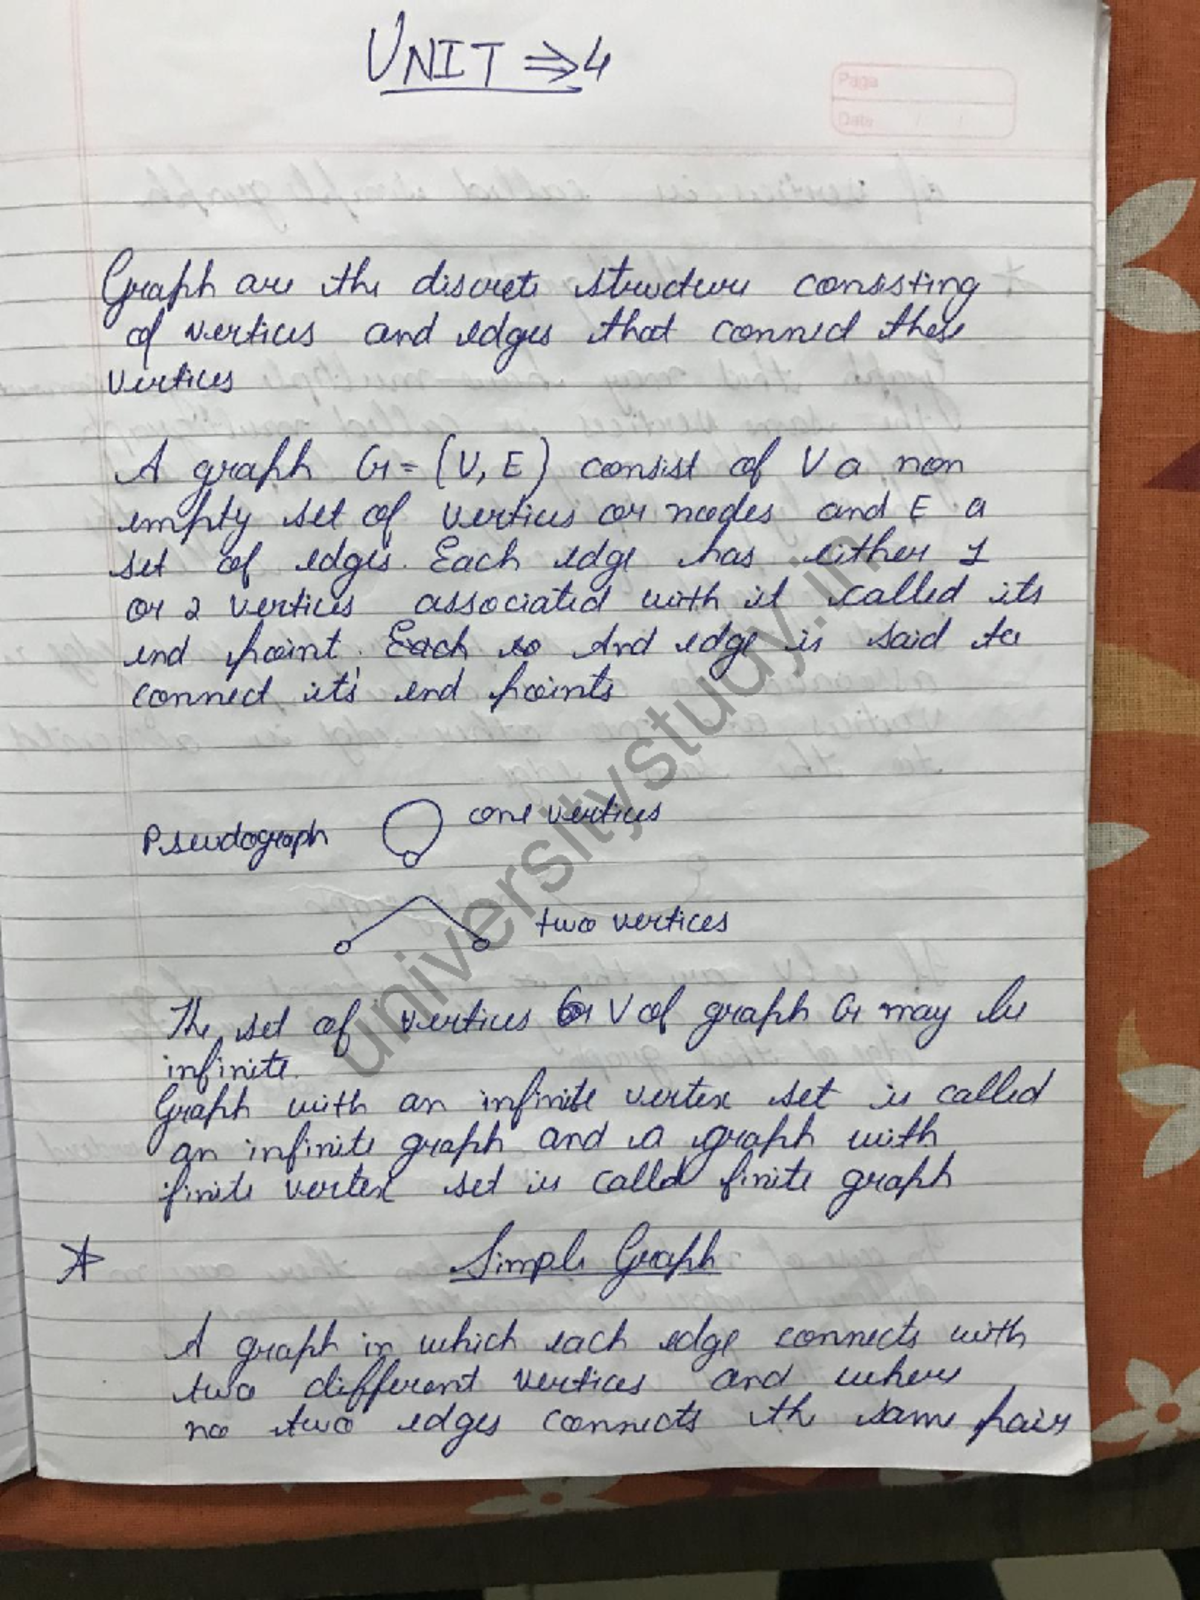 UNIT ⇒ 4
Page
Date / /
Graph are the discrete structure consisting
of vertices and edges that connect these
vertices
A graph G = (V, E) consist of V a non
empty set of vertices or nodes and E a
set of edges. Each edge has either 1
or 2 vertices associated with it called its
end point. Each so And edge is said to
connect its' end points
Pseudograph one vertices
two vertices
The set of vertices or V of graph G may be
infinite.
Graph with an infinite vertex set is called
an infinite graph and a graph with
finite vertex set is called finite graph
Simple Graph
A graph in which each edge connects with
two different vertices and where
no two edges connects the same pair
universitystudy.in